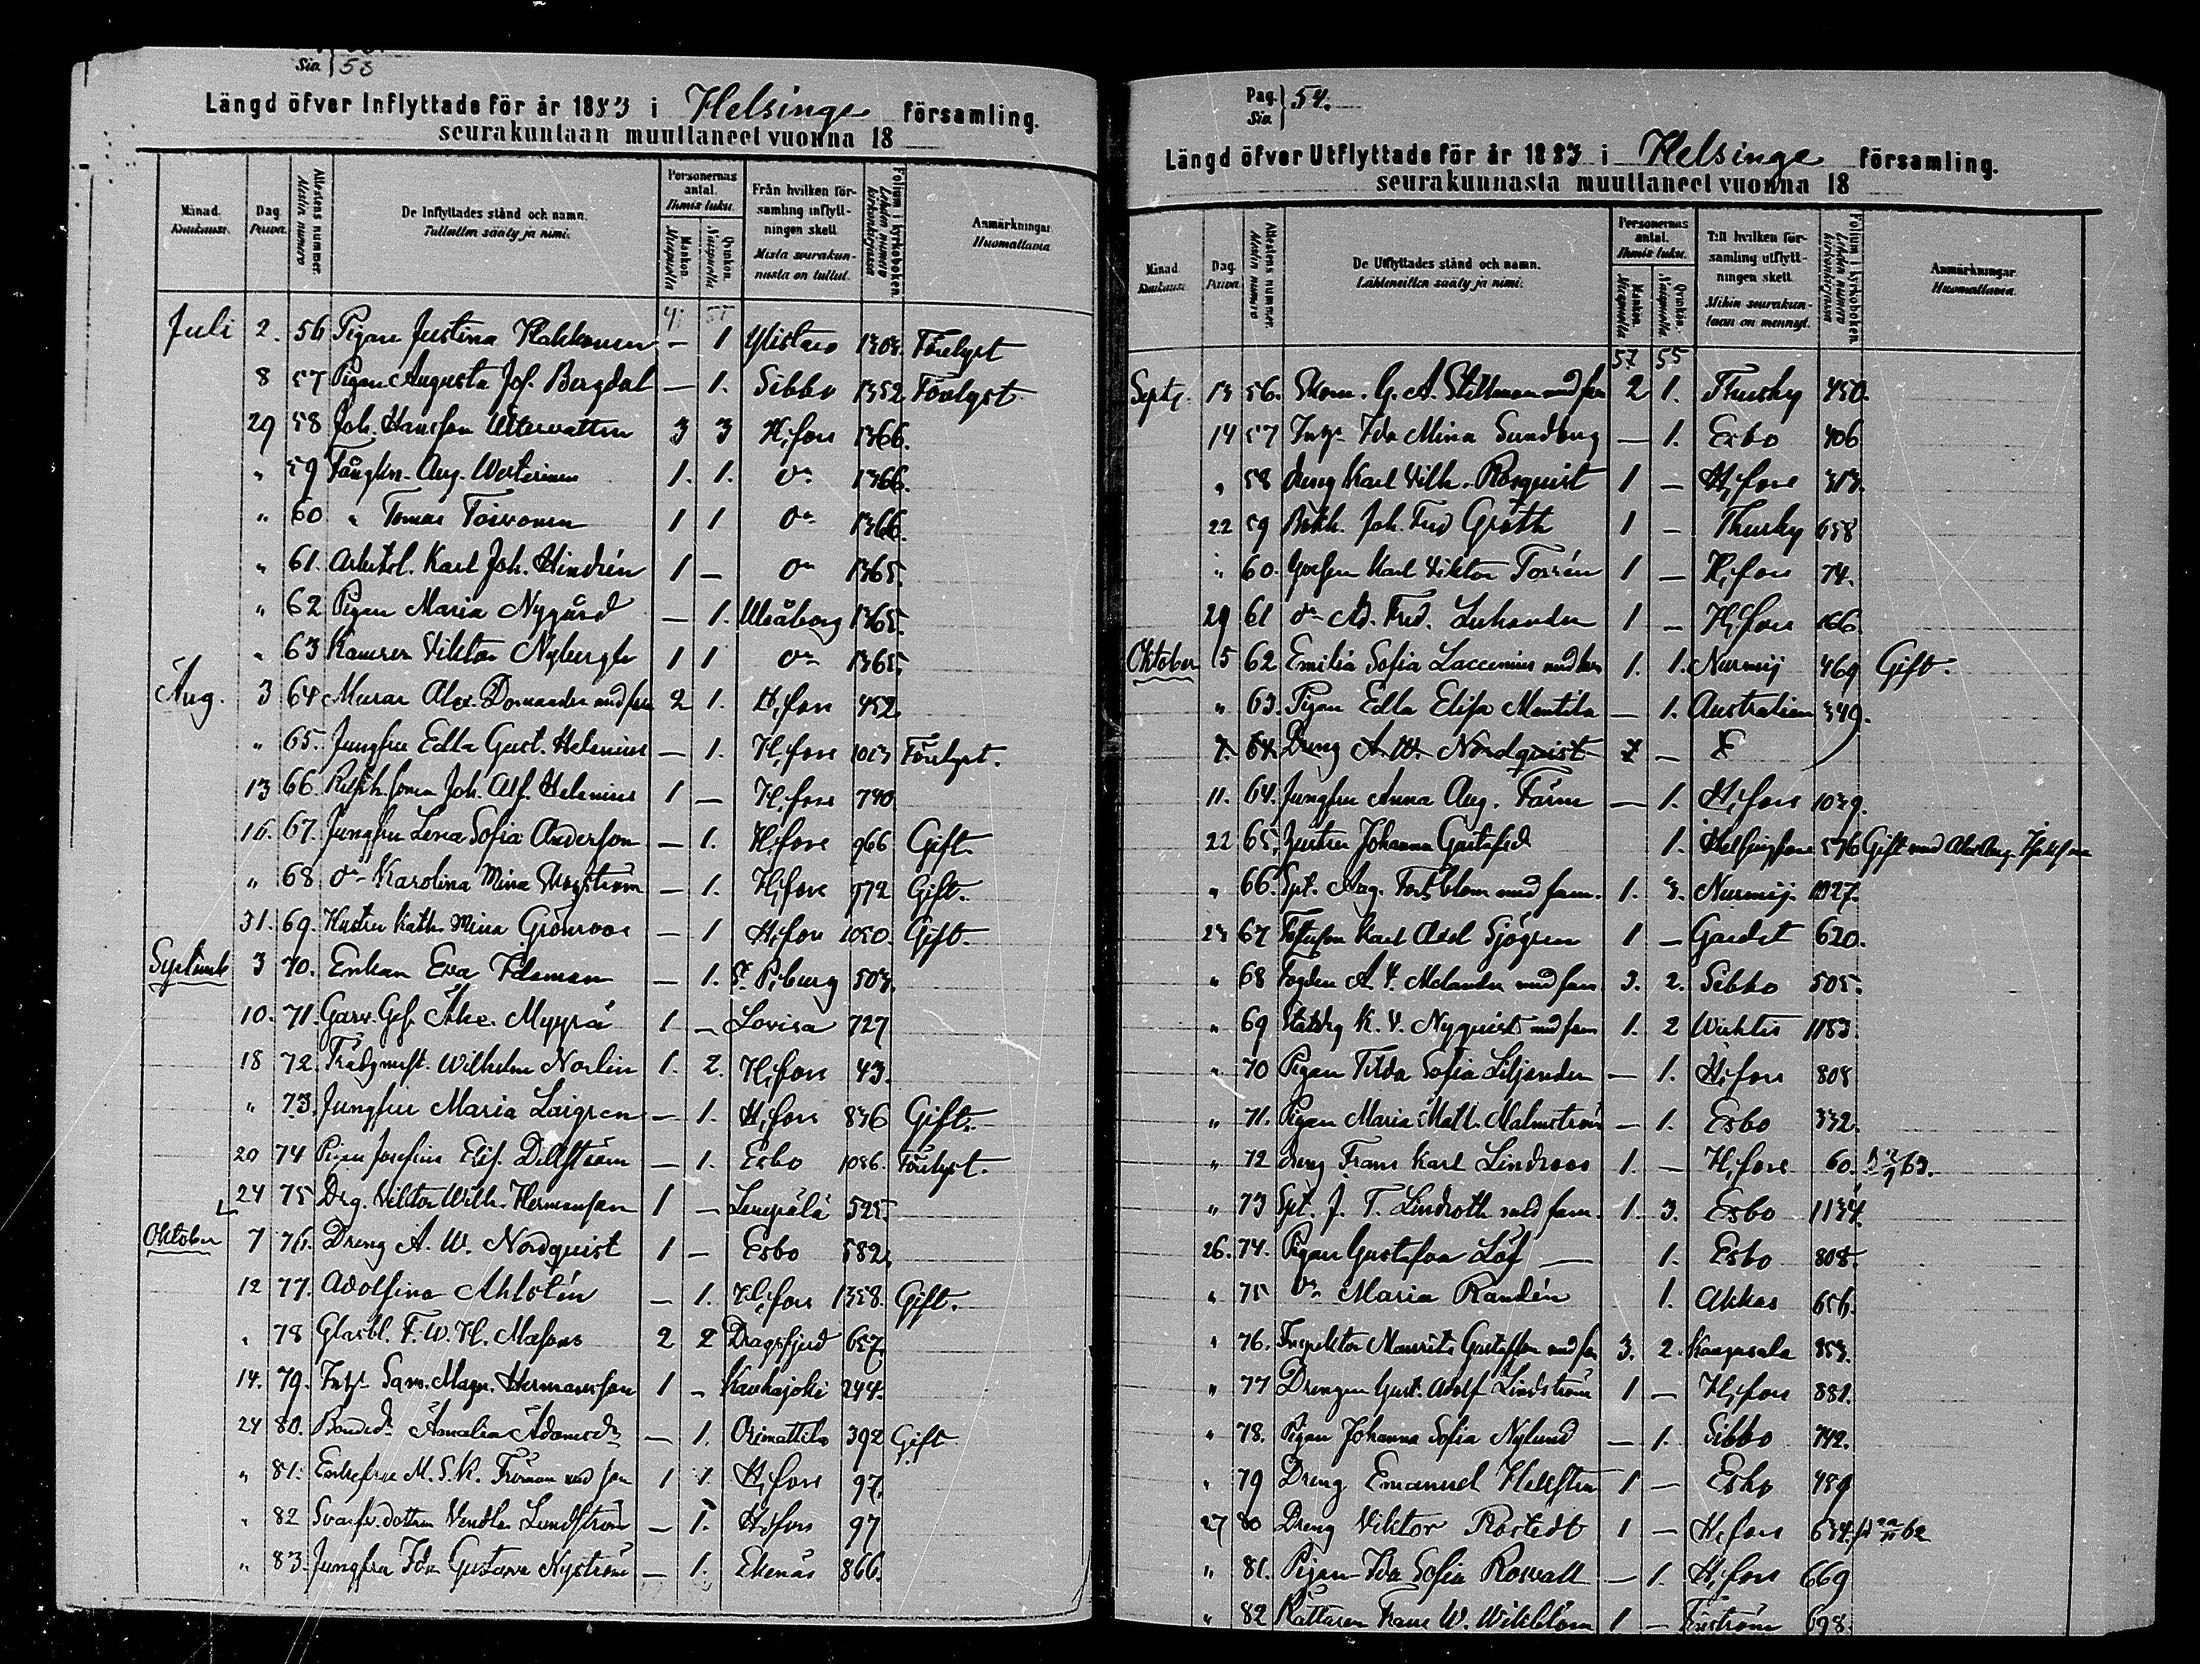 Sio. 53
Längd öfver Inflyttade för år 1883 i Helsinge församling.
seurakuntaan muuttaneet vuonna 18
Månad. Kuukausi.
Dag. Päivä.
Attestens nummer. Atestin numero
De Inflyttades stånd och namn. Tulleitten sääty ja nimi.
Personernas antal. Ihmis luku.
Mankön. Miespuolia
Qvinkön. Naispuolia
Från hvilken församling inflyttningen skett. Mistä seurakunnasta on tullut.
Folium i kyrkoboken. Lehden numero kirkonkirjassa
Anmärkningar Huomattavia
Juli 2. 56 Pigan Justina Hakkonen — 1 Ylistaro 1303. Förlyst
8 57 Pigan Augusta Jos. Bergdal — 1. Sibbo 1352 Förlyst
29 58 Joh. Hansson 3 3 H,fors 1366.
" 59 Fångkn. Aug. Westerinen 1. 1. d:o 1366.
" 60 " Tomas Toivonen 1 1 d:o 1366.
" 61. Arbetsk. Karl Joh. Hindrén 1 — d:o 1365.
" 62 Pigan Maria Nygård — 1. Uleåborg 1365.
" 63 Kamrer Viktor Nybergh 1 1 d:o 1365.
Aug. 3 64 Murar Alex. Dornander med fam 2 1. H,fors 452
" 65. Jungfru Edla Gust. Helenius — 1. H,fors 1013 Förlyst.
13 66. Joh. Alf. Helenius 1 — H,fors 740
16. 67. Jungfru Lena Sofia Andersson — 1. H,fors 966 Gift.
" 68 d:o Karolina Mina — 1. H,fors 972 Gift.
31. 69. Hustru Kath. Mina Grönroos — 1 H,fors 1050. Gift.
Septemb 3 70. Enkan Eva Ideman — 1. St P,burg 503.
10. 71. Garv. Ges. Åke Myyrä 1 — Lovisa 727
18 72. Trädgmest. Wilhelm Norlin 1. 2. H,fors 43.
" 73. Jungfru Maria Loigren — 1. H,fors 836 Gift.
20 74 Pigan Josefina Elis. Dellström — 1. Esbo 1086. Förlyst.
24 75 Drg. Viktor Wilh. Hermansson 1 — Lempälä 525.
Oktober 7 76. Dreng A. W. Nordquist 1 — Esbo 582.
12 77. Adolfina Ahlstén — 1. H,fors 1358. Gift.
" 78 Glasbl. F. W. H. 2 2 Dragsfjerd 657.
14. 79. Inh. Sam. Magn. Hermansson 1 — Kauhajoki 244.
24 80. Bonded:r Amalia Adamsd:r — 1. Orimattila 392 Gift
" 81. Enkefru M. S. K. med fam 1 1 H,fors 97.
" 82 dottern Vendla Lundström — 1. H,fors 97
" 83. Jungfru Ida Gustava Nyström — 1. Ekenäs 866.
Pag. Sio. 54.
Längd öfver Utflyttade för år 1883 i Helsinge församling.
seurakunnasta muuttaneet vuonna 18
Månad Kuukausi
Dag. Päivä.
Attestens nummer. Atestin numero
De Utflyttades stånd och namn. Lähteneitten sääty ja nimi.
Personernas antal. Ihmis luku.
Mankön. Miespuolia
Qvinkön. Naispuolia
Till hvilken församling utflyttningen skett. Mihin seurakuntaan on mennyt.
Folium i kyrkoboken. Lehden numero kirkonkirjassa
Anmärkningar Huomattavia.
57 55
Sept. 13 56. Skom. G. A. Stillman med fam 2 1. Thusby 450.
14 57 Inh. Ida Mina Sundberg — 1. Esbo 406
" 58 Dreng Karl Vilh. Rosquist 1 — H,fors 313.
22 59 Bokh. Joh. Fred Gräth 1 — Thusby 658
" 60. Karl Viktor Torrén 1 — H,fors 74.
29 61 d:o Ad. Fred. 1 — H,fors 166
Oktober 5 62 Emilia Sofia Laccenius med 1. 1. Nurmij 469 Gift.
" 63. Pigan Edla Elisa Mantila — 1. Australien 349.
7. 64 Dreng A. W. Nordquist 1 — E
11. 64. Jungfru Anna Aug. Färm — 1. H,fors 1039.
22 65. Hustru Johanna Gustafsd 1. Helsingfors 576 Gift med
" 66. Spt. Aug. Forsblom med fam. 1. 3. Nurmij. 1327.
23 67 Karl Axel Sjögren 1 — Gardet 620.
" 68 Fogden A. V. Melander med fam 3. 2. Sibbo 505.
" 69 Statdrg K. V. Nyquist med fam 1. 2 Wichtis 1183.
" 70 Pigan Tilda Sofia Liljander — 1. H,fors 808
" 71. Pigan Maria Math. Malmström — 1. Esbo 332.
" 72 dreng Frans Karl Lindroos 1. — H,fors 60. 63.
" 73 Spt. J. T. Lindroth med fam. 1. 3. Esbo 1134.
26. 74. Pigan Gustafva Löf — 1. Esbo 808.
" 75 d:o Maria Randén 1. Akkas 656.
" 76. Inspektor Maurits Gustafsson med fam 3. 2. Kangasala 853.
" 77 Drengen Gust. Adolf Lindström 1 — H,fors 881.
" 78. Pigan Johanna Sofia Nylund — 1. Sibbo 742.
" 79 Dreng Emanuel Hellsten 1 — Esbo 489
27 80 Dreng Viktor Rostedt 1 — H,fors 634. 62
" 81. Pigan Ida Sofia Roswall — 1. H,fors 669
" 82 Rättaren Frans W. Wikblom 1 — 698.